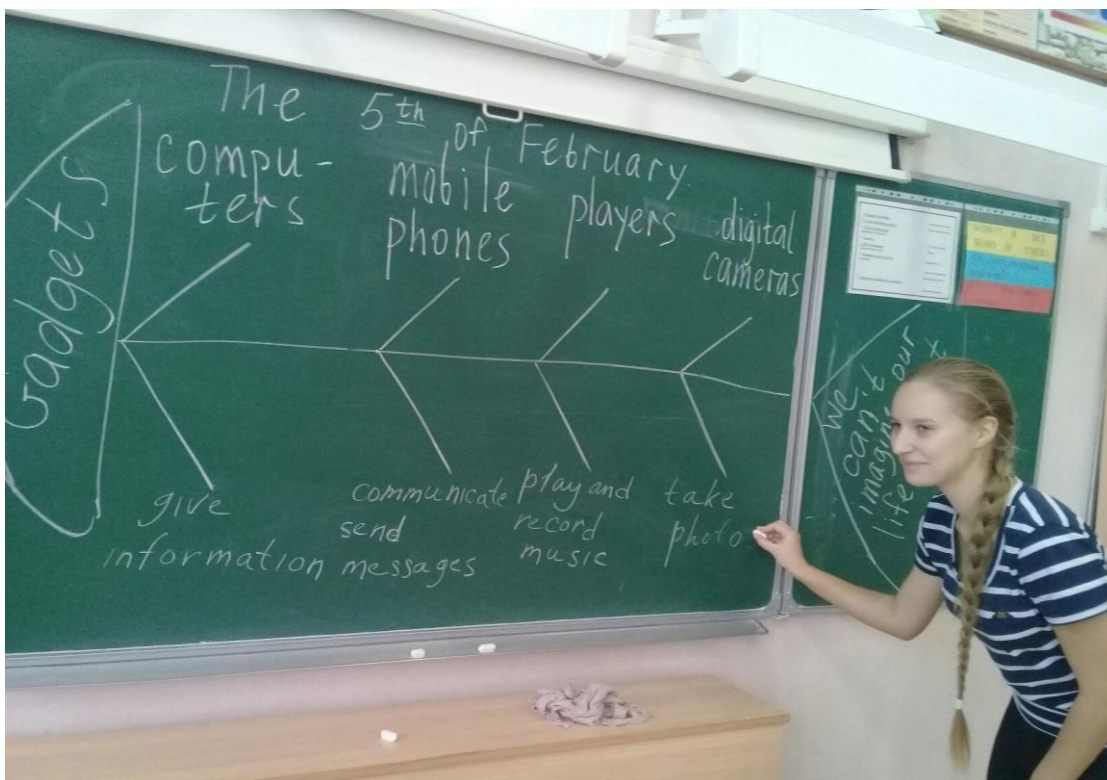 The 5th of February.
Gadgets
compu-
ters
mobile
phones
players
digital
cameras
give
information
communicate
send
messages
play and
record
music
take
photo
we
can't
imagin
our
life